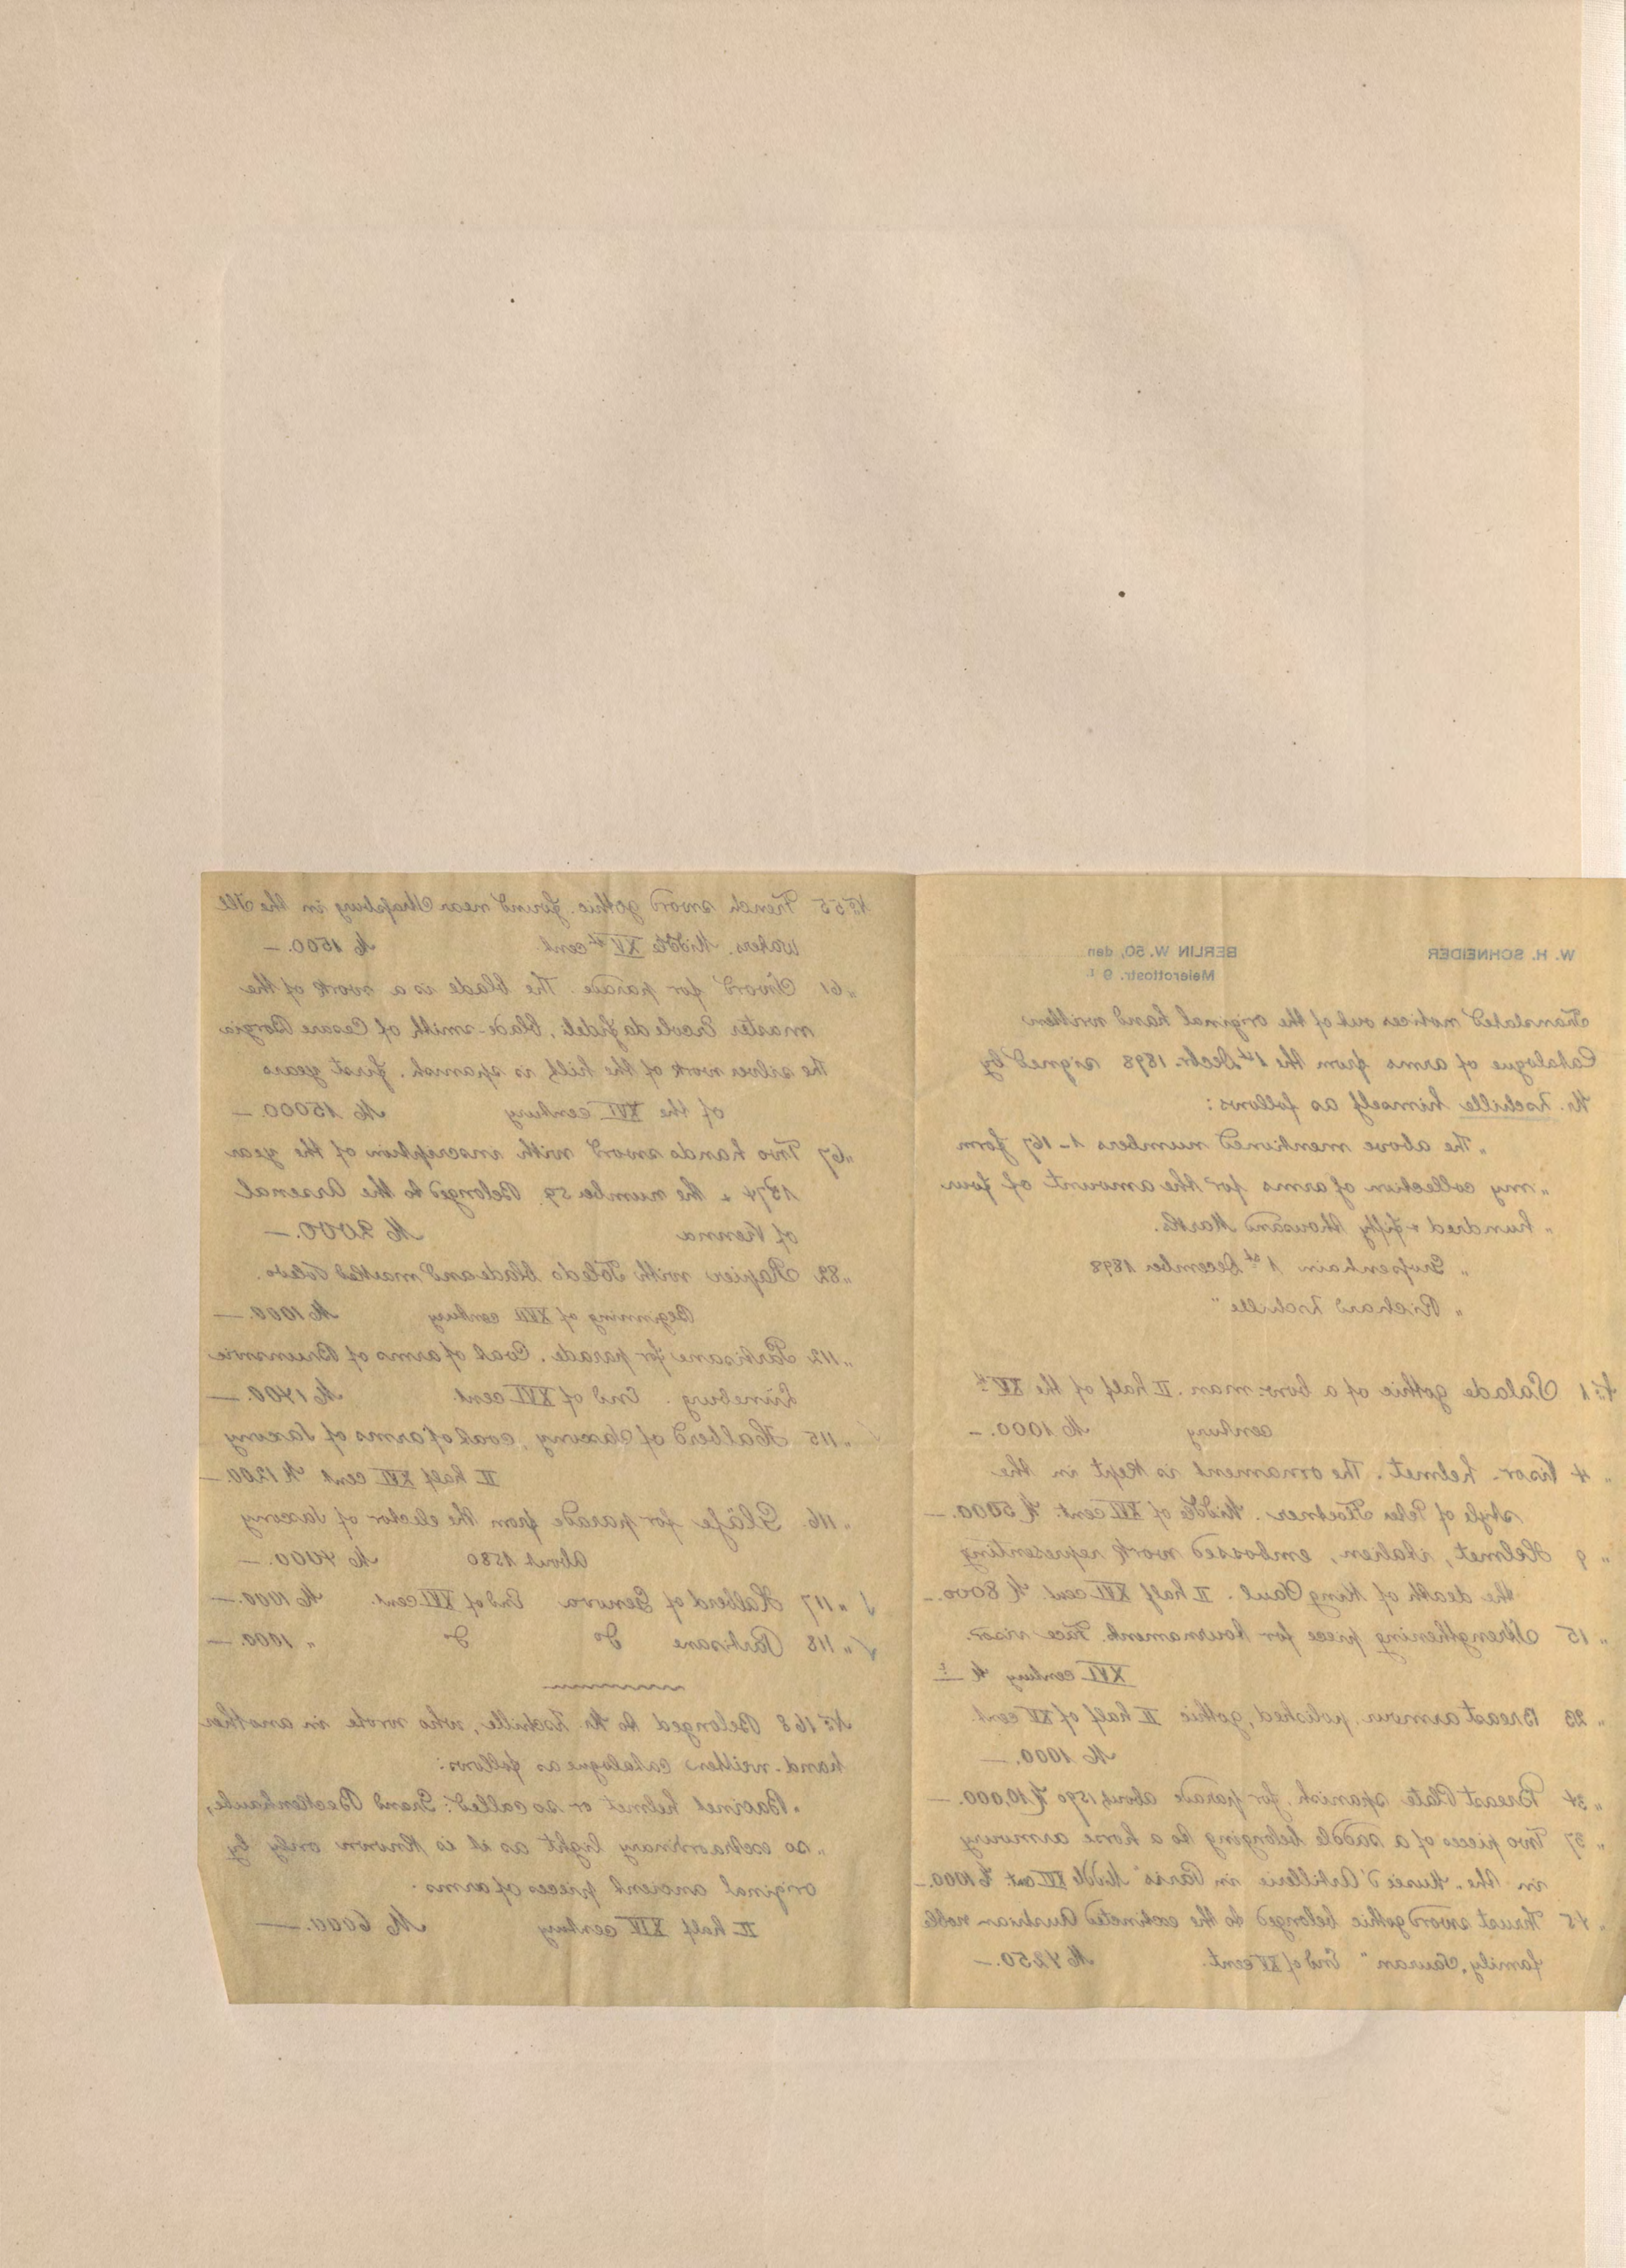 W. H. SCHNEIDER
BERLIN W. 50, den
Meierottostr. 9 I
Translated notices out of the original hand written
Catalogue of arms from the 1st Decbr. 1898 signed by
Mr. Zschille himself as follows:
„The above mentioned numbers 1-167 form
„my collection of arms for the amount of four
„hundred & fifty thousand Marks.
„Grossenhain 1st December 1898
„Richard Zschille"
No 1 Salade gothic of a bow-man. II half of the XVth
century M 1000.—
„ 4 Visor-helmet. The ornament is kept in the
style of Peter Floetner. Middle of XVI cent. M 5000.—
„ 9 Helmet, italien, embossed work representing
the death of King Saul. II half XVI cent. M 8000.—
„ 15 Strengthening piece for tournament. Face visor.
XVI century M — ?
„ 23 Breast armour, polished, gothic II half of XV cent.
M 1000.—
„ 34 Breast Plate spanish, for parade about 1590 M 10,000.—
„ 37 Two pieces of a saddle belonging to a horse armoury
in the „Museé d'Artillerie in Paris" Middle XVI cent M 1000.—
„ 45 Thrust sword gothic belonged to the extincted Austrian noble
family „Saurau" End of XV cent. M 4250.—
No 55 French sword gothic. found near Strassburg in the Ill
waters. Middle XVth cent M 1500.—
„ 61 Sword for parade. The blade is a work of the
master Ercole da fideli, blade-smith of Cesare Borgia
the silver work of the hilt is spanish. first years
of the XVI century M 15000.—
„ 67 Two hands sword with inscription of the year
1574 & the number 59. Belonged to the Arsenal
of Vienna M 2000.—
„ 82 Rapier with Toledo blade and marked Toledo.
Beginning of XVII century M 1000.—
„ 112 Partisane for parade. Coat of arms of Brunsvic
Lüneburg. End of XVI cent. M 1400.—
„ 115 Halberd of Saxony, coat of arms of Saxony
II half XVI cent M 1200.—
„ 116. Gläfe for parade from the elector of Saxony
About 1580 M 4000.—
√ „ 117 Halberd of Genova End of XVI cent. M 1000.—
√ „ 118 Partisane do do „ 1000.—
No 168 Belonged to Mr. Zschille, who wrote in another
hand-written catalogue as follows:
„Bacinet helmet or so called: Grand Beckenhaube,
„so extraordinary light as it is known only by
original ancient pieces of arms.
II half XIV century M 6000.—